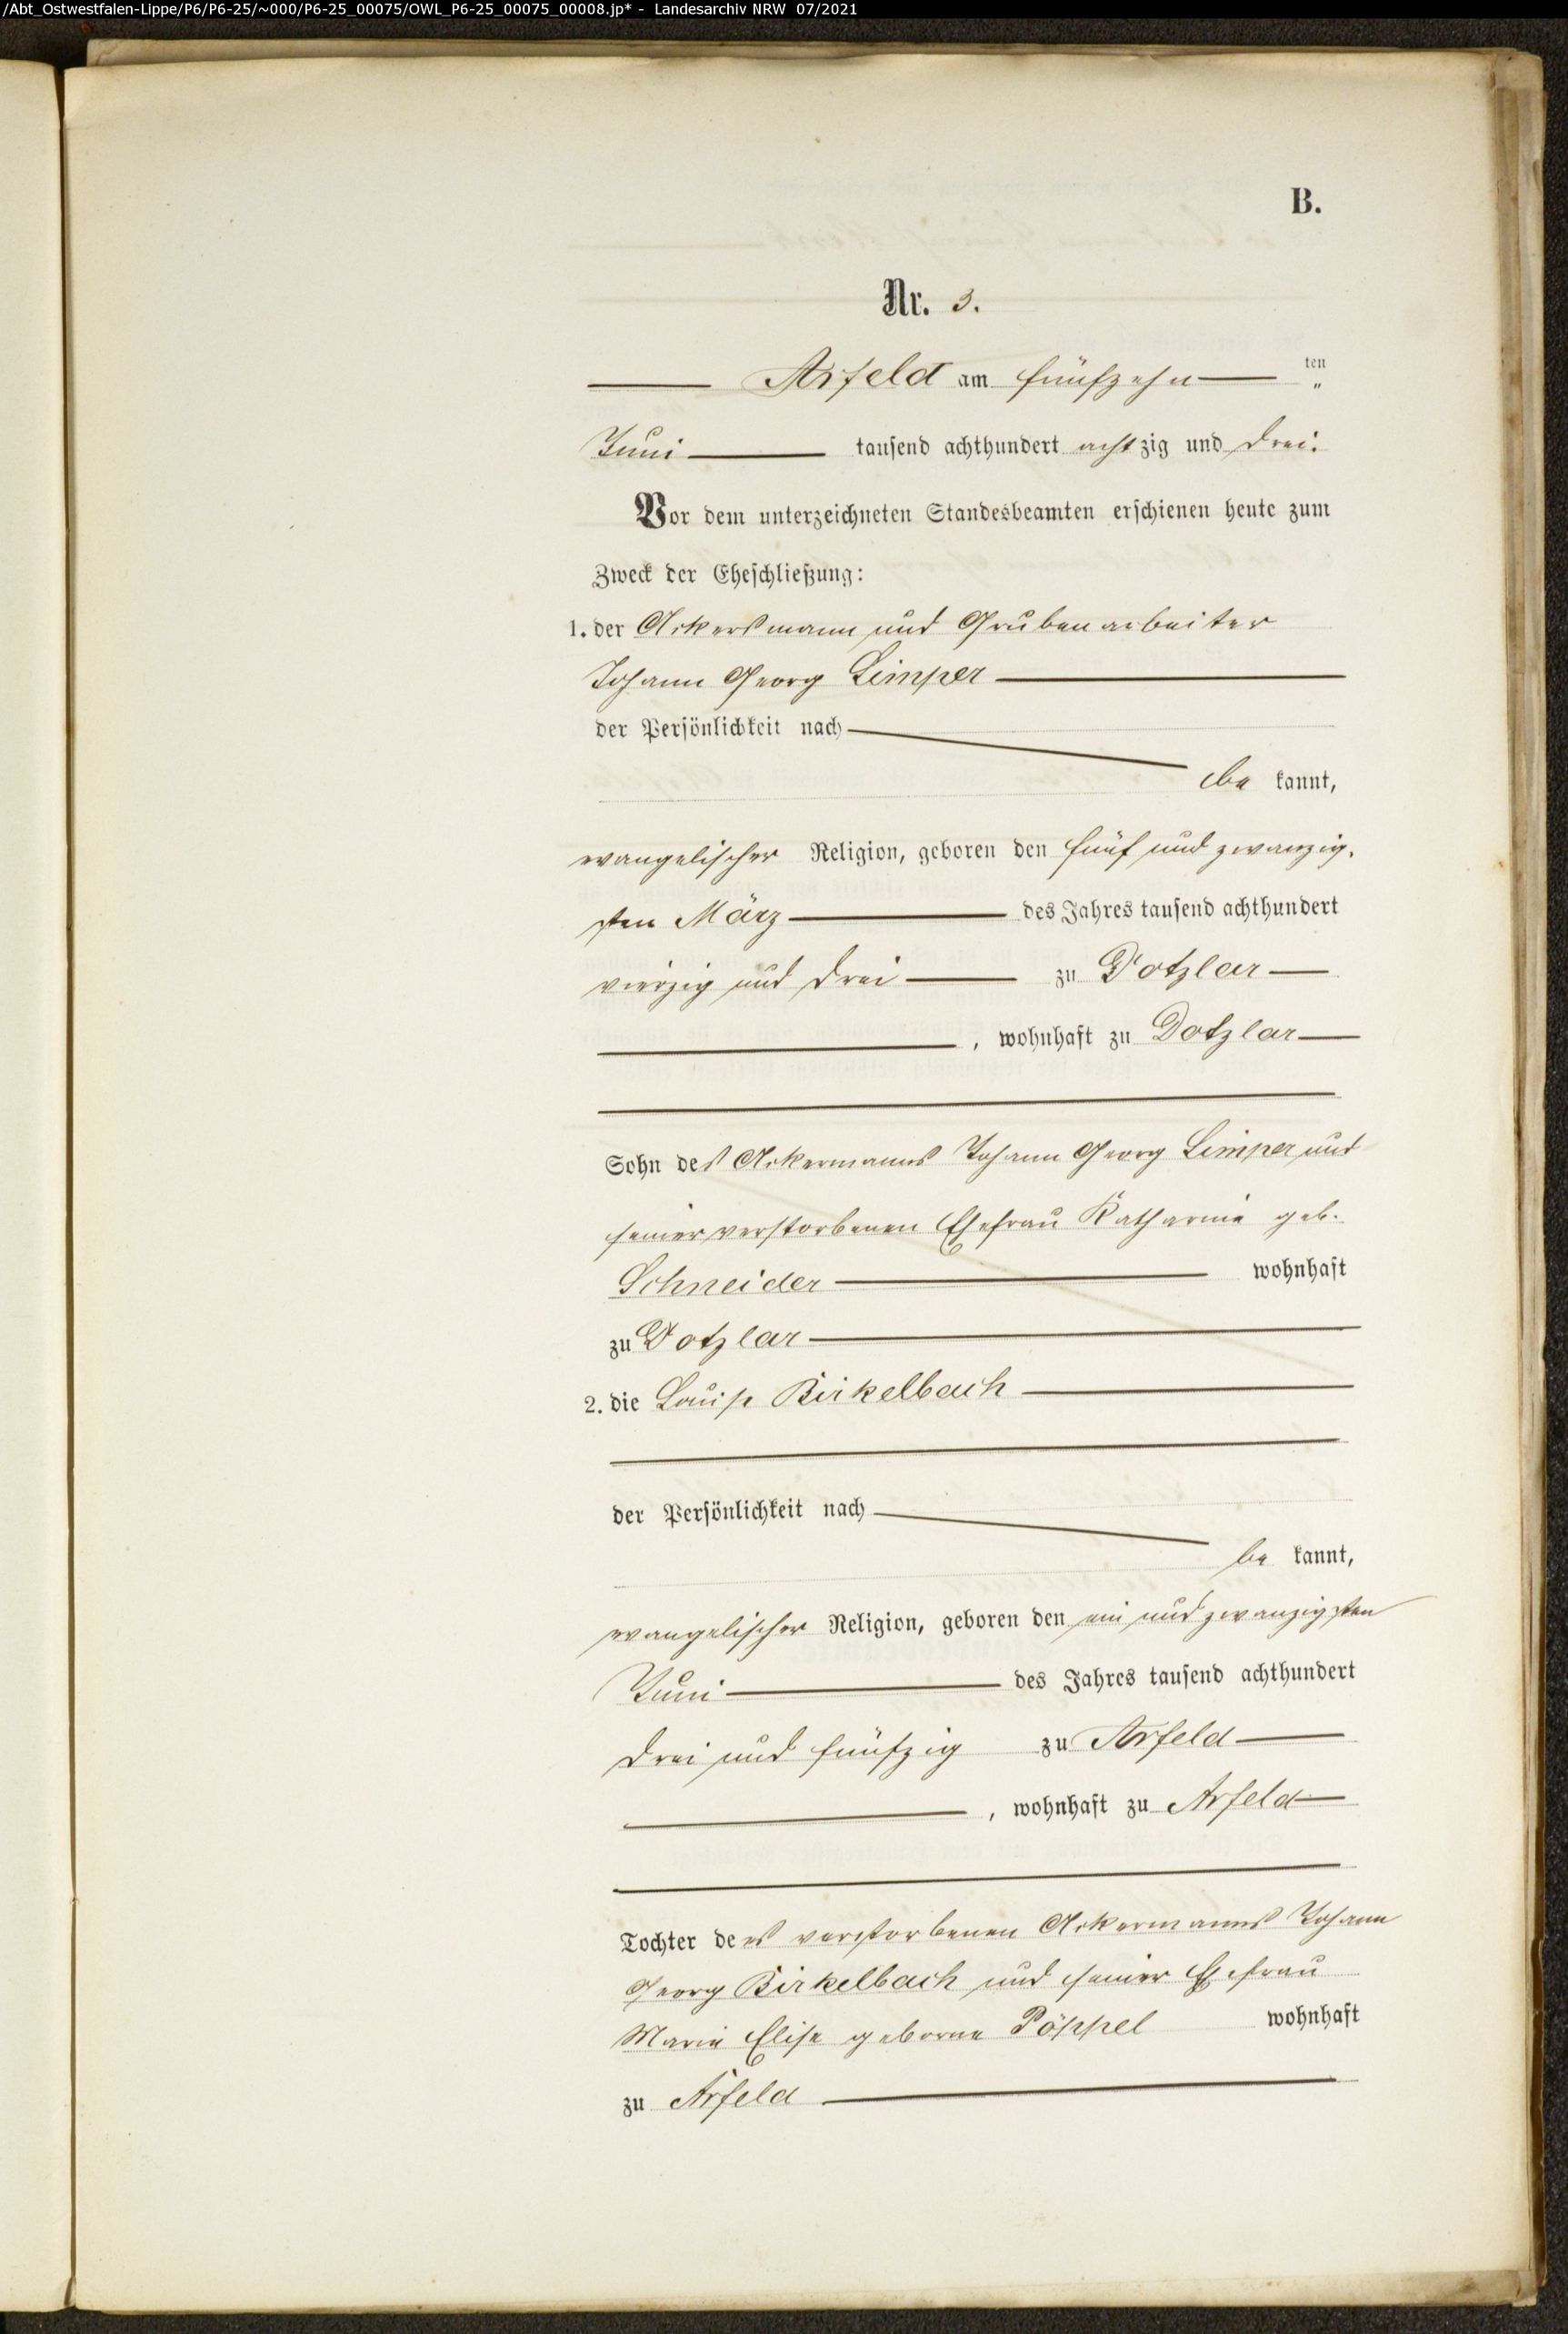 /Abt_Ostwestfalen-Lippe/P6/P6-25/~000/P6-25_00075/OWL_P6-25_00075_00008.jp* - Landesarchiv NRW 07/2021
B.
Nr. 3.
Arfeld am fünfzehn ten "
Juni tausend achthundert achtzig und drei.
Vor dem unterzeichneten Standesbeamten erschienen heute zum
Zweck der Eheschließung:
1. der Ackersmann und Grubenarbeiter
Johann Georg Limper
der Persönlichkeit nach
be kannt,
evangelischer Religion, geboren den fünf und zwanzig-
sten März des Jahres tausend achthundert
vierzig und drei zu Dotzlar
, wohnhaft zu Dotzlar
Sohn des Ackermanns Johann Georg Limper und
seiner verstorbenen Ehefrau Katharine geb.
Schneider wohnhaft
zu Dotzlar
2. die Louise Birkelbach
der Persönlichkeit nach
be kannt,
evangelischer Religion, geboren den ein und zwanzigsten
Juni des Jahres tausend achthundert
drei und fünfzig zu Arfeld
, wohnhaft zu Arfeld
Tochter des verstorbenen Ackermanns Johann
Georg Birkelbach und seiner Ehefrau
Marie Elise geborne Pöppel wohnhaft
zu Arfeld